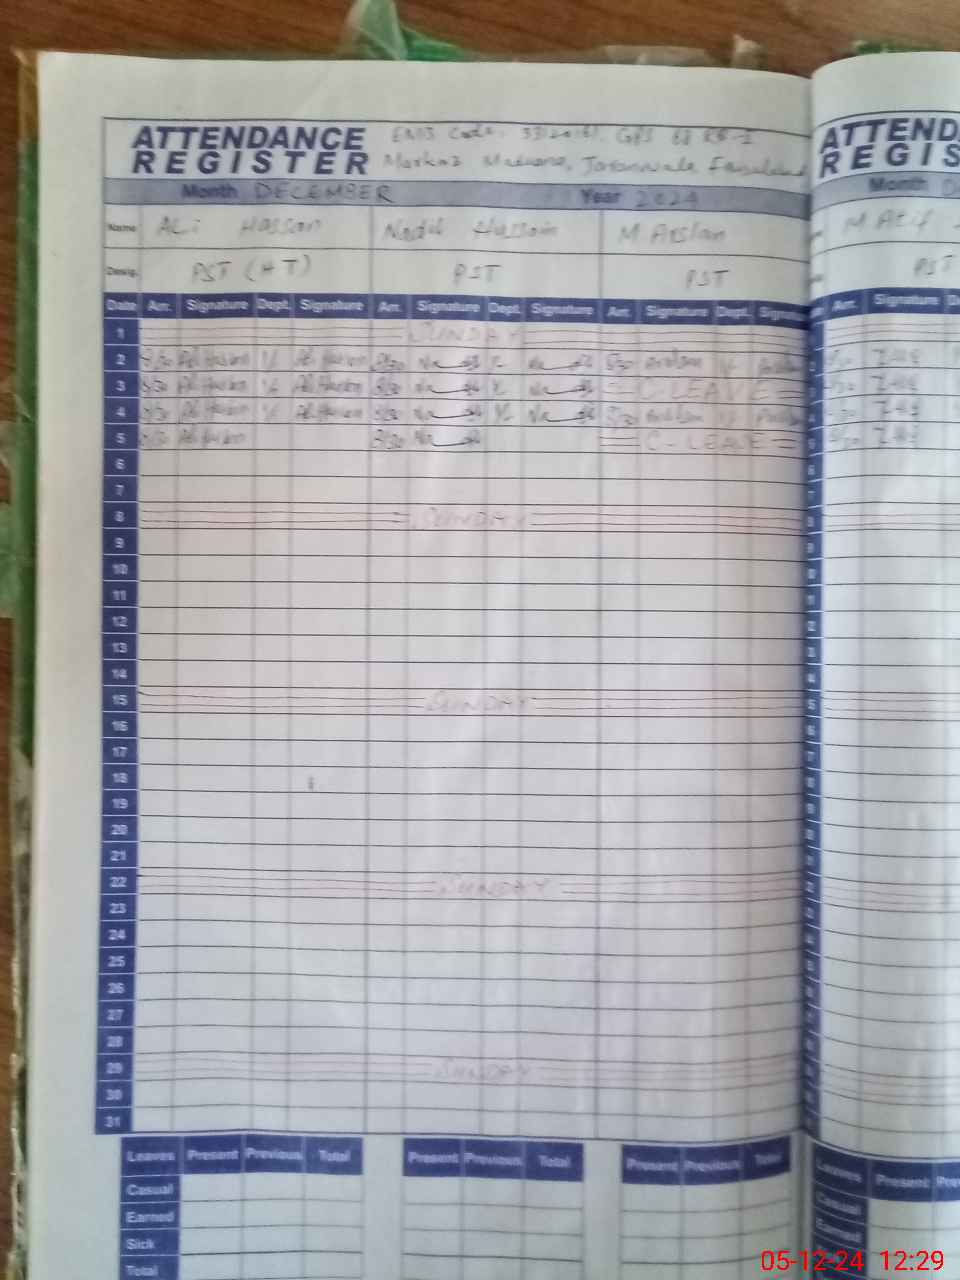 ATTENDANCE REGISTER
EMIS Code: GPS 68 RB-I
Markaz Jaranwala, Faisalabad
Month DECEMBER Year 2024
Name Ali Hassan Nadil Hussain M Arslan
Desig. PST (HT) PST PST
Date Arr. Signature Dept. Signature Arr. Signature Dept. Signature Arr. Signature Dept. Signature
1 SUNDAY
2 8/30 Ali Hassan Ali Hassan 8/30 8/30 Arslan Arslan
3 8/30 Ali Hassan Ali Hassan 8/30 C-LEAVE
4 8/30 Ali Hassan Ali Hassan 8/30 8/30 Arslan Arslan
5 8/30 Ali Hassan 8/30 C-LEAVE
6
7
8 SUNDAY
9
10
11
12
13
14
15 SUNDAY
16
17
18
19
20
21
22 SUNDAY
23
24
25
26
27
28
29 SUNDAY
30
31
Leaves Present Previous Total Present Previous Total Present Previous Total
Casual
Earned
Sick
Total
ATTEND
REGIS
Month D
M Atif
PST
Arr. Signature
Leaves Present Pre
Casual
Earned
05-12-24 12:29